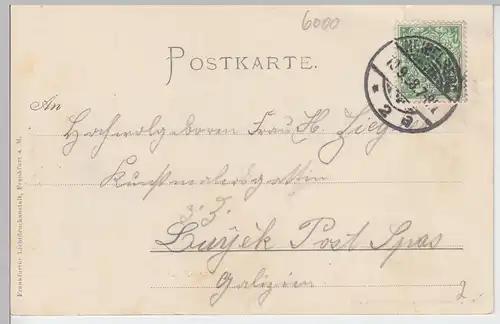 6000
POSTKARTE.
An
Hochwolgeboren Frau H. Zieg
Kunstmalersgattin
z. Z.
Post Spas
Galizien
Frankfurter Lichtdruckanstalt, Frankfurt a. M.